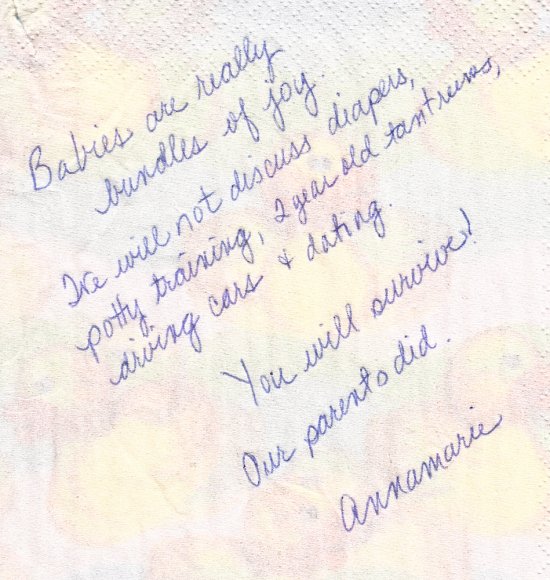 Babies are really
bundles of joy.
We will not discuss diapers,
potty training, 2 year old tantrums,
driving cars & dating.
You will survive!
Our parents did.
Annamarie